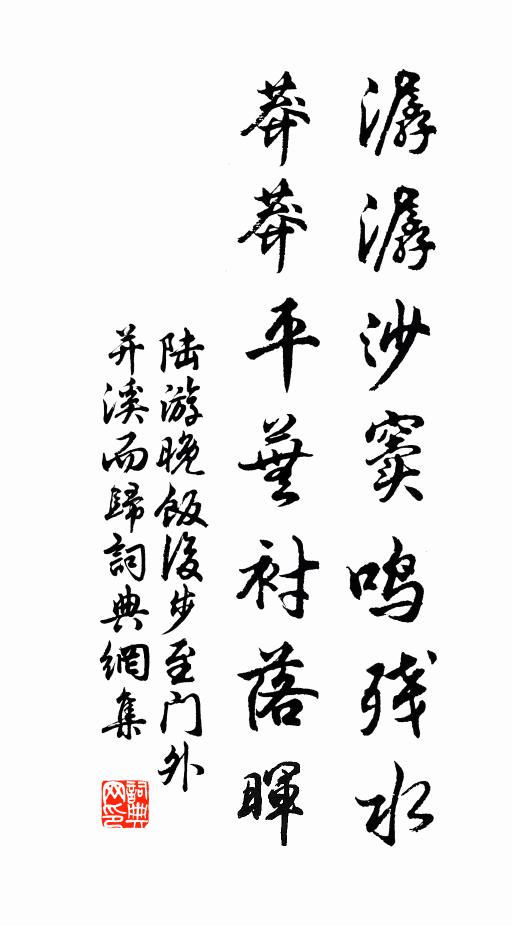 潺潺沙窦鸣残水
莽莽平蕪衬落暉
陆游晚飯後步至门外
并溪而歸詞典網集
詞典网印